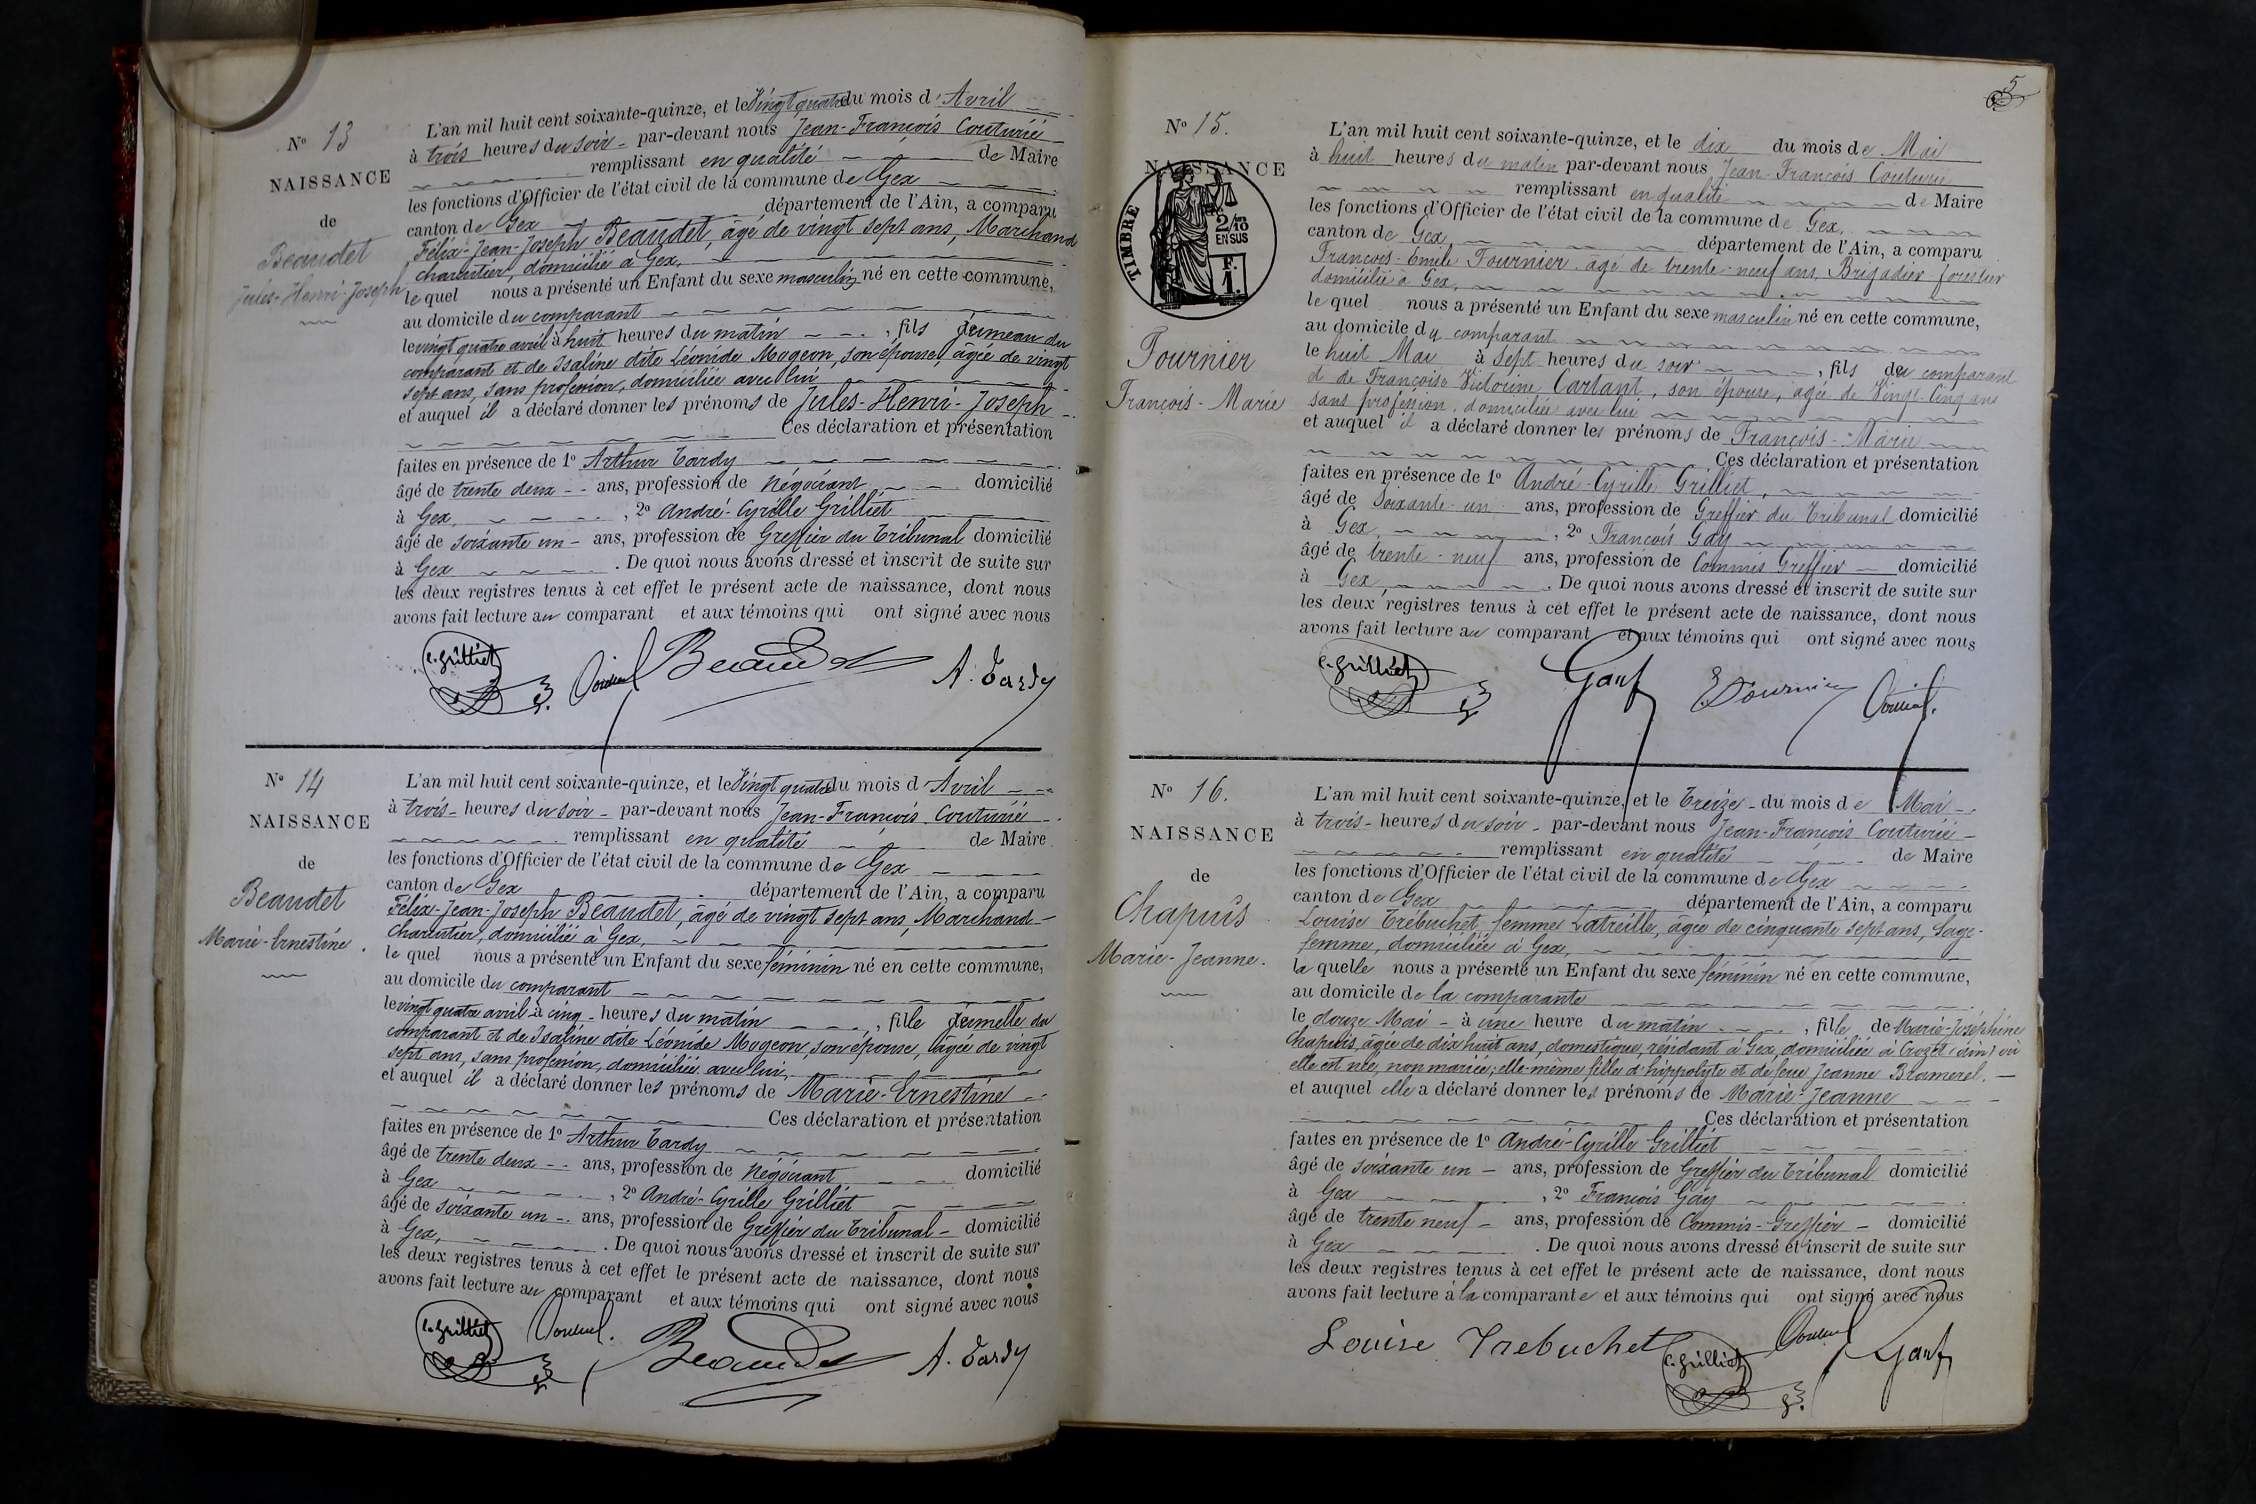 N° 13
NAISSANCE
de
Beaudet
Jules-Henri-Joseph
L'an mil huit cent soixante-quinze, et le Vingt quatre du mois d'Avril
à trois heures du soir par-devant nous Jean-François Couturié
remplissant en qualité de Maire
les fonctions d'Officier de l'état civil de la commune de Gex
canton de Gex département de l'Ain, a comparu
Félix-Jean-Joseph Beaudet, âgé de vingt sept ans, Marchand
charcutier, domicilié à Gex,
le quel nous a présenté un Enfant du sexe masculin né en cette commune,
au domicile du comparant
le vingt quatre avril à huit heures du matin, fils jumeau du
comparant et de Isaline dite Léonide Mogeon, son épouse, âgée de vingt
sept ans, sans profession, domiciliée avec lui
et auquel il a déclaré donner les prénoms de Jules-Henri-Joseph
Ces déclaration et présentation
faites en présence de 1° Arthur Tardy
âgé de trente deux ans, profession de Négociant domicilié
à Gex, 2° André-Cyrille Grilliet
âgé de soixante un ans, profession de Greffier du Tribunal domicilié
à Gex. De quoi nous avons dressé et inscrit de suite sur
les deux registres tenus à cet effet le présent acte de naissance, dont nous
avons fait lecture au comparant et aux témoins qui ont signé avec nous
C. Grilliet Beaudet A. Tardy
N° 14
NAISSANCE
de
Beaudet
Marie-Ernestine.
L'an mil huit cent soixante-quinze, et le Vingt quatre du mois d'Avril
à trois heures du soir par-devant nous Jean-François Couturié
remplissant en qualité de Maire
les fonctions d'Officier de l'état civil de la commune de Gex
canton de Gex département de l'Ain, a comparu
Félix-Jean-Joseph Beaudet, âgé de vingt sept ans, Marchand
Charcutier, domicilié à Gex,
le quel nous a présenté un Enfant du sexe féminin né en cette commune,
au domicile du comparant
le vingt quatre avril à cinq heures du matin, fille jumelle du
comparant et de Isaline dite Léonide Mogeon, son épouse, âgée de vingt
sept ans, sans profession, domiciliée avec lui,
et auquel il a déclaré donner les prénoms de Marie-Ernestine
Ces déclaration et présentation
faites en présence de 1° Arthur Tardy
âgé de trente deux ans, profession de Négociant domicilié
à Gex, 2° André-Cyrille Grilliet
âgé de soixante un ans, profession de Greffier du Tribunal domicilié
à Gex,. De quoi nous avons dressé et inscrit de suite sur
les deux registres tenus à cet effet le présent acte de naissance, dont nous
avons fait lecture au comparant et aux témoins qui ont signé avec nous
C. Grilliet Beaudet A. Tardy
5
N° 15.
NAISSANCE
TIMBRE
2/10
EN SUS
F.
1.
Fournier
François-Marie
L'an mil huit cent soixante-quinze, et le dix du mois de Mai
à huit heures du matin par-devant nous Jean-François Couturié
remplissant en qualité de Maire
les fonctions d'Officier de l'état civil de la commune de Gex,
canton de Gex, département de l'Ain, a comparu
François-Emile Fournier âgé de trente-neuf ans, Brigadier forestier
domicilié à Gex,
le quel nous a présenté un Enfant du sexe masculin né en cette commune,
au domicile du comparant
le huit Mai à Sept heures du soir, fils du comparant
et de Françoise Victorine Cartant, son épouse, âgée de Vingt-Cinq ans
sans profession, domiciliée avec lui
et auquel il a déclaré donner les prénoms de François-Marie
Ces déclaration et présentation
faites en présence de 1° André-Cyrille Grilliet,
âgé de Soixante-un ans, profession de Greffier du Tribunal domicilié
à Gex, 2° François Gay
âgé de trente-neuf ans, profession de Commis Greffier domicilié
à Gex,. De quoi nous avons dressé et inscrit de suite sur
les deux registres tenus à cet effet le présent acte de naissance, dont nous
avons fait lecture au comparant et aux témoins qui ont signé avec nous
C. Grilliet Gay F. E. Fournier
N° 16.
NAISSANCE
de
Chapuis
Marie-Jeanne.
L'an mil huit cent soixante-quinze, et le Treize du mois de Mai
à trois heures du soir par-devant nous Jean-François Couturié
remplissant en qualité de Maire
les fonctions d'Officier de l'état civil de la commune de Gex
canton de Gex département de l'Ain, a comparu
Louise Trébuchet, femme Latreille, âgée de cinquante sept ans, Sage-
femme, domiciliée à Gex,
la quelle nous a présenté un Enfant du sexe féminin né en cette commune,
au domicile de la comparante
le douze Mai à une heure du matin, fille de Marie-Joséphine
Chapuis, âgée de dix huit ans, domestique, résidant à Gex, domiciliée à Crozet (Ain) où
elle est née, non mariée; elle-même fille d'hippolyte et de feue Jeanne
et auquel elle a déclaré donner les prénoms de Marie-Jeanne
Ces déclaration et présentation
faites en présence de 1° André-Cyrille Grilliet
âgé de soixante un ans, profession de Greffier du Tribunal domicilié
à Gex, 2° François Gay
âgé de trente neuf ans, profession de Commis-Greffier domicilié
à Gex. De quoi nous avons dressé et inscrit de suite sur
les deux registres tenus à cet effet le présent acte de naissance, dont nous
avons fait lecture à la comparante et aux témoins qui ont signé avec nous
Louise Trebuchet C. Grilliet Gay F.